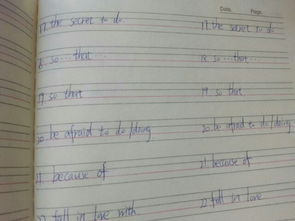 Date. Page.
17. the secret to do
17. the secret to do
18. so... that...
18. so... that...
19. so that
19. so that
20. be afraid to do / doing
20. be afraid to do / doing
21. because of
21. because of
22 fall in love with
22 fall in love